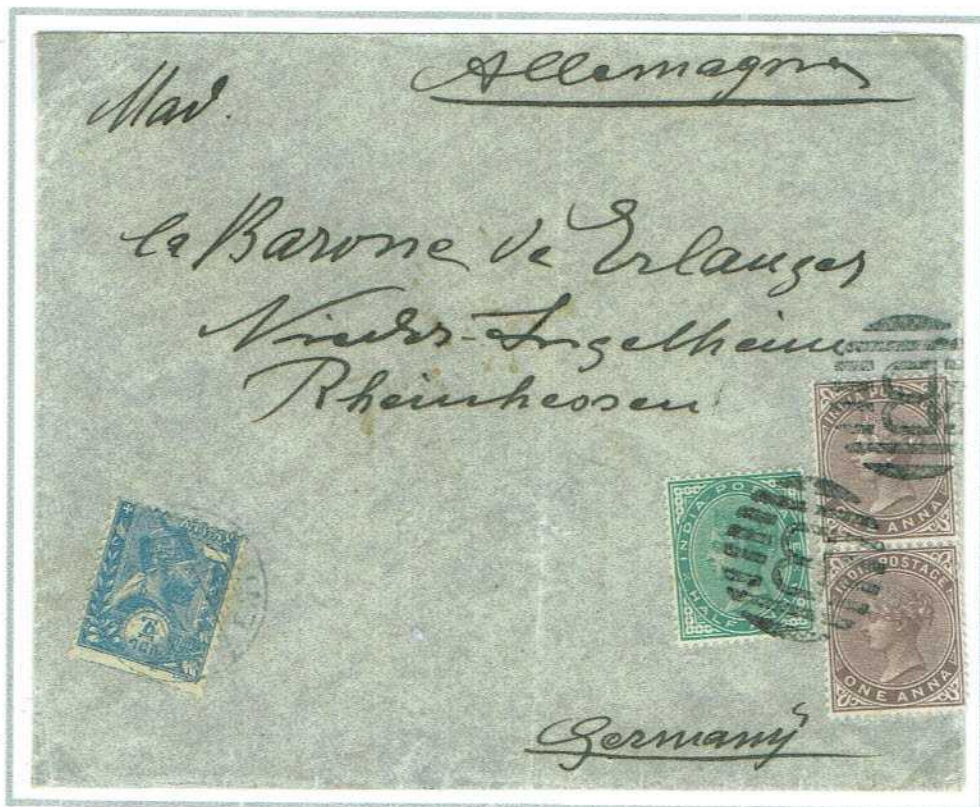 Allemagne
Mad.
la Barone de Erlanger
Nieder-Ingelheim
Rheinhessen
INDIA POSTAGE
ONE ANNA
INDIA PO
HALF
INDIA PO
ANNA
Germany